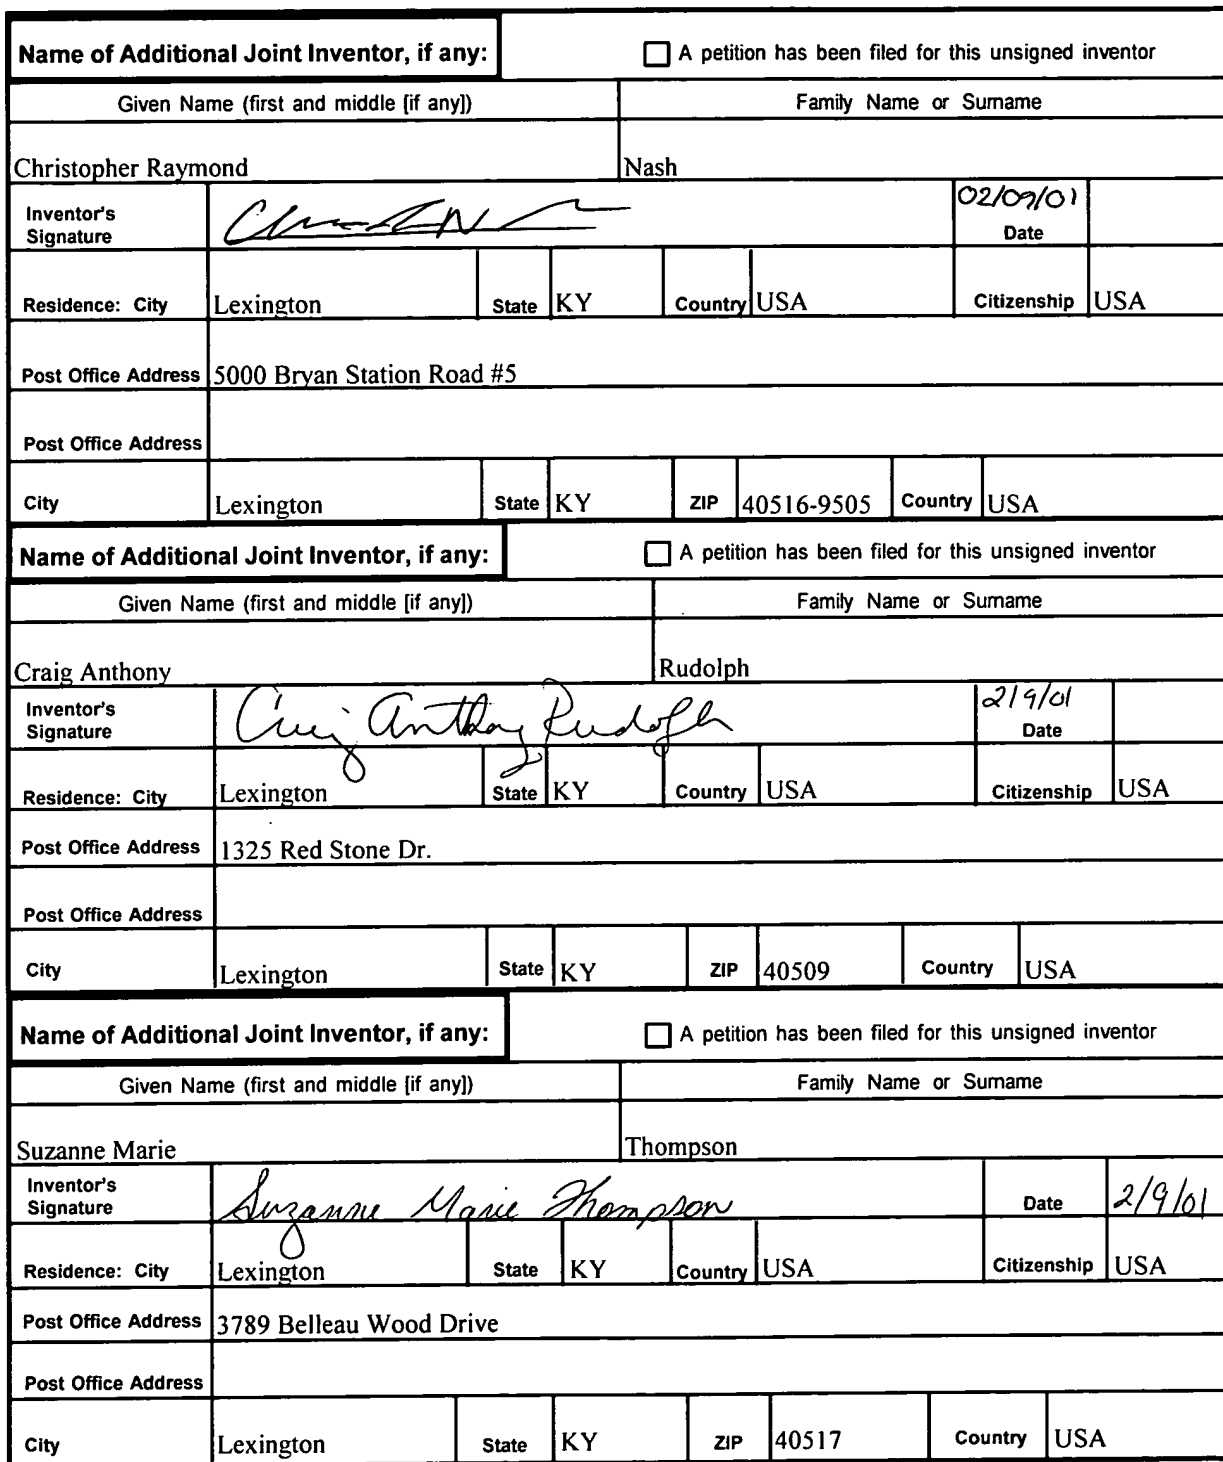 Name of Additional Joint Inventor, if any: A petition has been filed for this unsigned inventor
Given Name (first and middle [if any]) Family Name or Surname
Christopher Raymond Nash
Inventor's Signature 02/09/01 Date
Residence: City Lexington State KY Country USA Citizenship USA
Post Office Address 5000 Bryan Station Road #5
Post Office Address
City Lexington State KY ZIP 40516-9505 Country USA
Name of Additional Joint Inventor, if any: A petition has been filed for this unsigned inventor
Given Name (first and middle [if any]) Family Name or Surname
Craig Anthony Rudolph
Inventor's Signature Craig Anthony Rudolph 2/9/01 Date
Residence: City Lexington State KY Country USA Citizenship USA
Post Office Address 1325 Red Stone Dr.
Post Office Address
City Lexington State KY ZIP 40509 Country USA
Name of Additional Joint Inventor, if any: A petition has been filed for this unsigned inventor
Given Name (first and middle [if any]) Family Name or Surname
Suzanne Marie Thompson
Inventor's Signature Suzanne Marie Thompson Date 2/9/01
Residence: City Lexington State KY Country USA Citizenship USA
Post Office Address 3789 Belleau Wood Drive
Post Office Address
City Lexington State KY ZIP 40517 Country USA